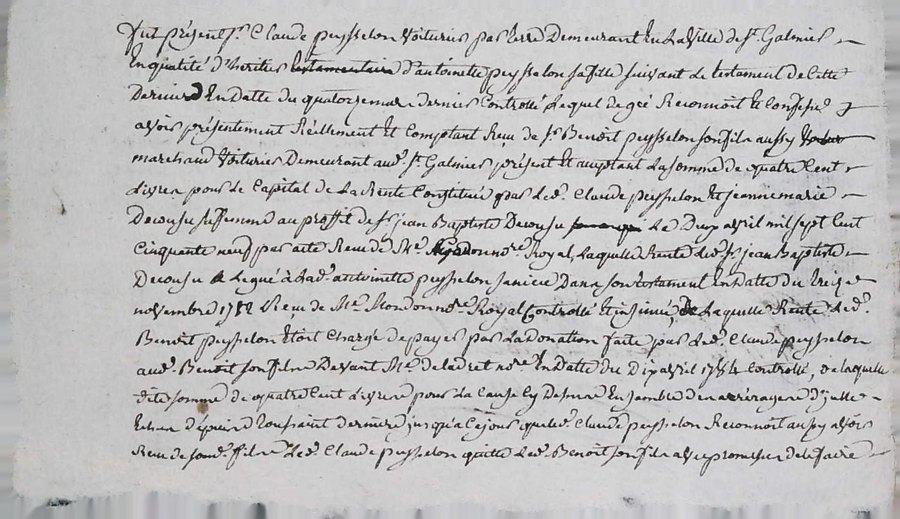 fut présent sr. Claude peysselon voiturier par terre Demeurant En La Ville de st. Galmier
En qualité d'héritier testamentaire d'antoinette peysselon sa fille suivant Le testament de Cette
Derniere En Datte du quatorze mars dernier Controllé Lequel de gré Reconnoit Et Confesse
avoir présentement Réellement Et Comptant Reçu de sr. Benoit peysselon son fils aussy
marchand Voiturier Demeurant aud. st. Galmier présent Et acceptant La somme de quatre Cent
Livres pour Le Capital de La Rente Constituée par Led. Claude peysselon Et jeanne marie
Decousu sa femme au proffit de sr. jean Baptiste Decousu Le Deux avril mil sept Cent
Cinquante neuf par acte Reçu de Me. nore. Royal, Laquelle Rente Led. sr. jean Baptiste
Decousu a Legué à Lad. antoinette peysselon sa niece Dans son testament En Datte du treize
novembre 1782 Reçu de Me. Mondon nore. Royal Controllé Et insinué, De Laquelle Rente Led.
Benoit peysselon Etoit Chargé de payer par La Donation faite par Led. Claude peysselon
aud. Benoit son fils Devant Me. nore. En Datte du Dix avril 1784 Controllé, de laquelle
dite somme de quatre Cent Livres pour La Cause Cy Dessus Ensemble des arrérages D'jcelle
Echus Depuis La Toussaint derniere jusqu'a Ce jour que led. Claude peysselon Reconnoit aussy avoir
Reçu de sond. fils Led. Claude peysselon quitte Led. Benoit son fils avec promesse de le faire